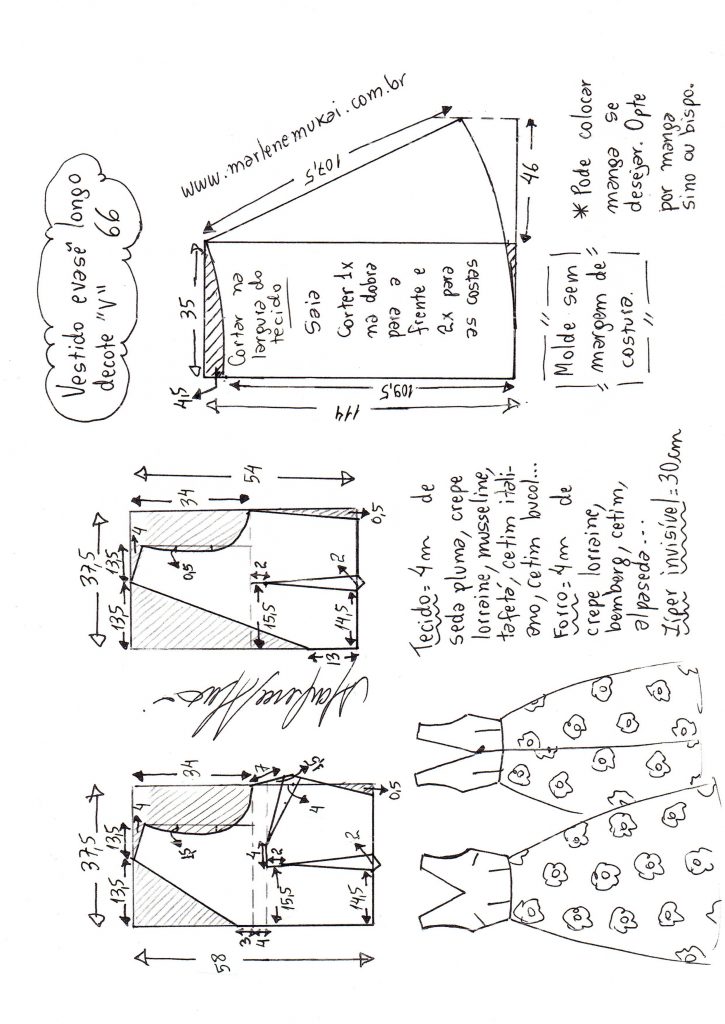 Vestido evasê longo
decote "V" 66
www.marlenemukai.com.br
58
37,5
13,5
13,5
4
34
1,5
7
3
4
4
2
4
15,5
14,5
2
0,5
37,5
13,5
13,5
4
34
54
0,5
2
15,5
14,5
13
2
0,5
35
4,5
114
109,5
107,5
46
Cortar na
largura do
tecido
Saia
Corter 1x
na dobra
para a
frente e
2x para
as costas
Tecido = 4m de
seda pluma, crepe
lorraine, musseline,
tafetá, cetim itali-
ano, cetim bucol...
Forro = 4m de
crepe lorraine,
bemberg, cetim,
alpaseda...
Zíper invisível = 30cm
Molde sem
margem de
costura.
* Pode colocar
manga se
desejar. Opte
por manga
sino ou bispo.